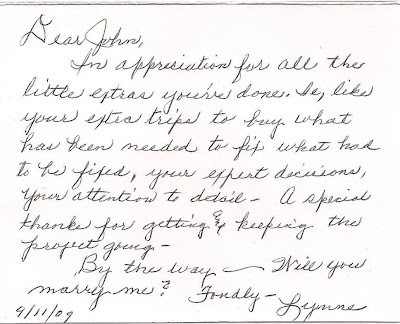 Dear John,
In appreciation for all the
little extras you've done. Ie, like
your extra trips to buy what
has been needed to fix what had
to be fixed, your expert decisions,
your attention to detail - A special
thanks for getting & keeping the
project going -
By the way - Will you
marry me? Fondly -
Lynne
9/11/09